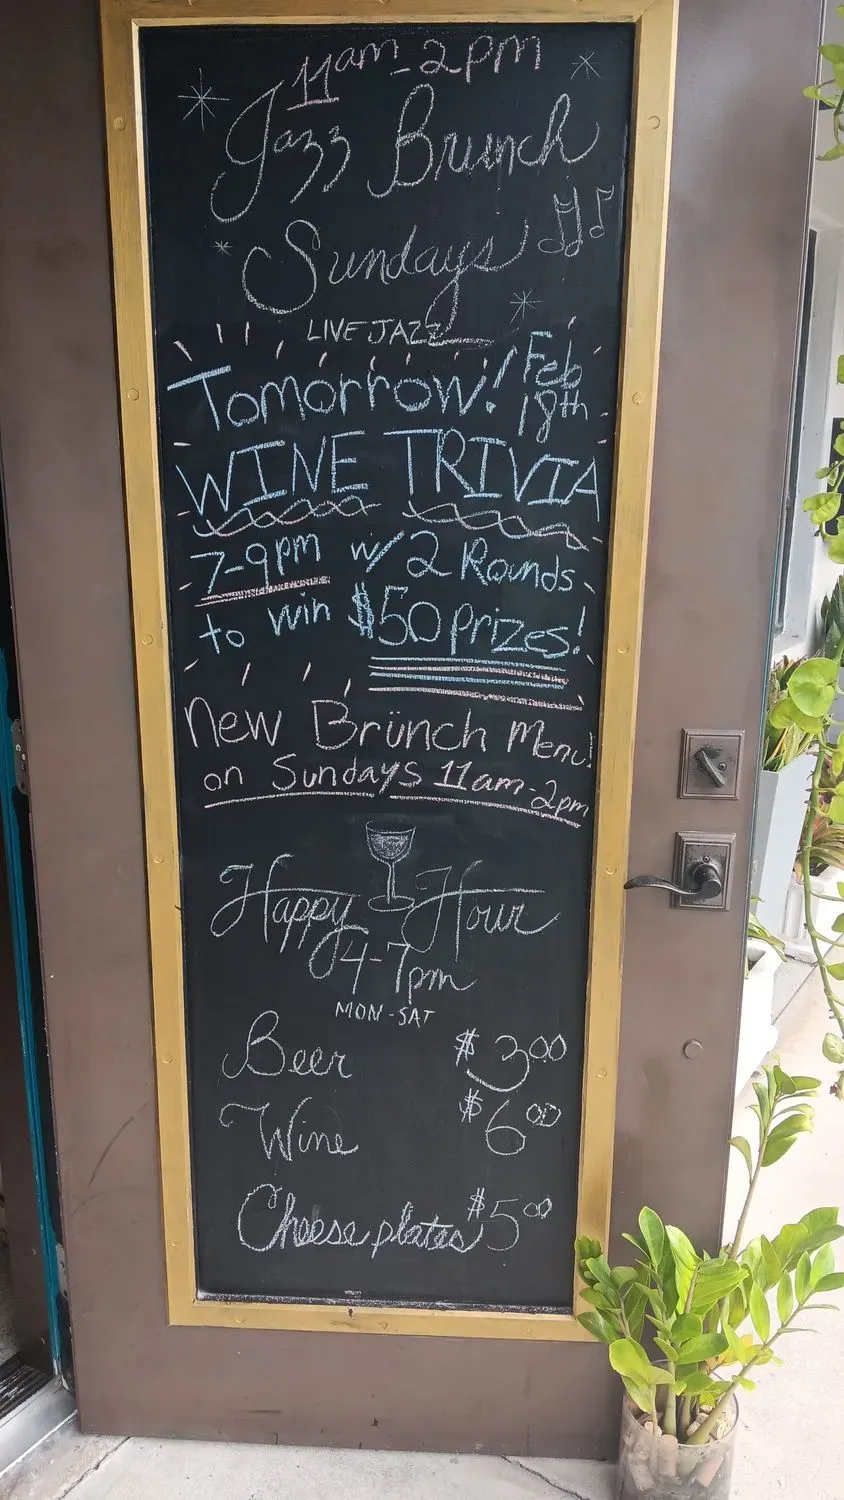 11am-2pm
Jazz Brunch
Sundays
LIVE JAZZ
Tomorrow! Feb 18th
WINE TRIVIA
7-9pm w/ 2 Rounds
to win $50 prizes!
New Brünch Menu!
on Sundays 11am-2pm
Happy Hour
4-7pm
MON-SAT
Beer $3.00
Wine $6.00
Cheese plates $5.00